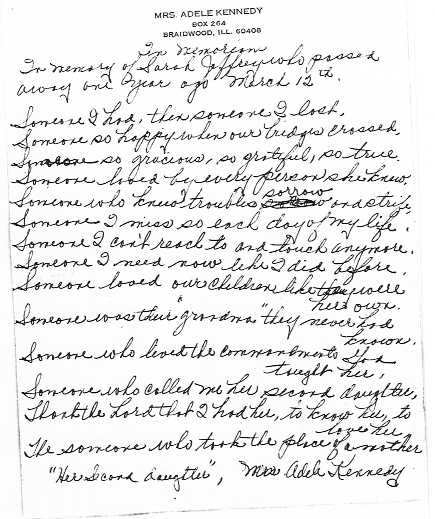 MRS. ADELE KENNEDY
BOX 264
BRAIDWOOD, ILL. 60408
In Memoriam
In memory of Sarah Jeffrey who passed
away one year ago March 12th.
Someone I had, then someone I lost,
Someone so happy when our bridges crossed,
Someone so gracious, so grateful, so true.
Someone loved by every person she knew,
Someone who knew troubles sorrow and strife,
Someone I miss so each day of my life.
Someone I can't reach to and touch anymore.
Someone I need now like I did before.
Someone loved our children like they were
her own.
Someone was their "grandma" they never had
known.
Someone who lived the commandments God
taught her,
Someone who called me her second daughter,
Thank the Lord that I had her, to know her, to
love her,
The someone who took the place of a mother
"Her Second daughter", Mrs Adele Kennedy